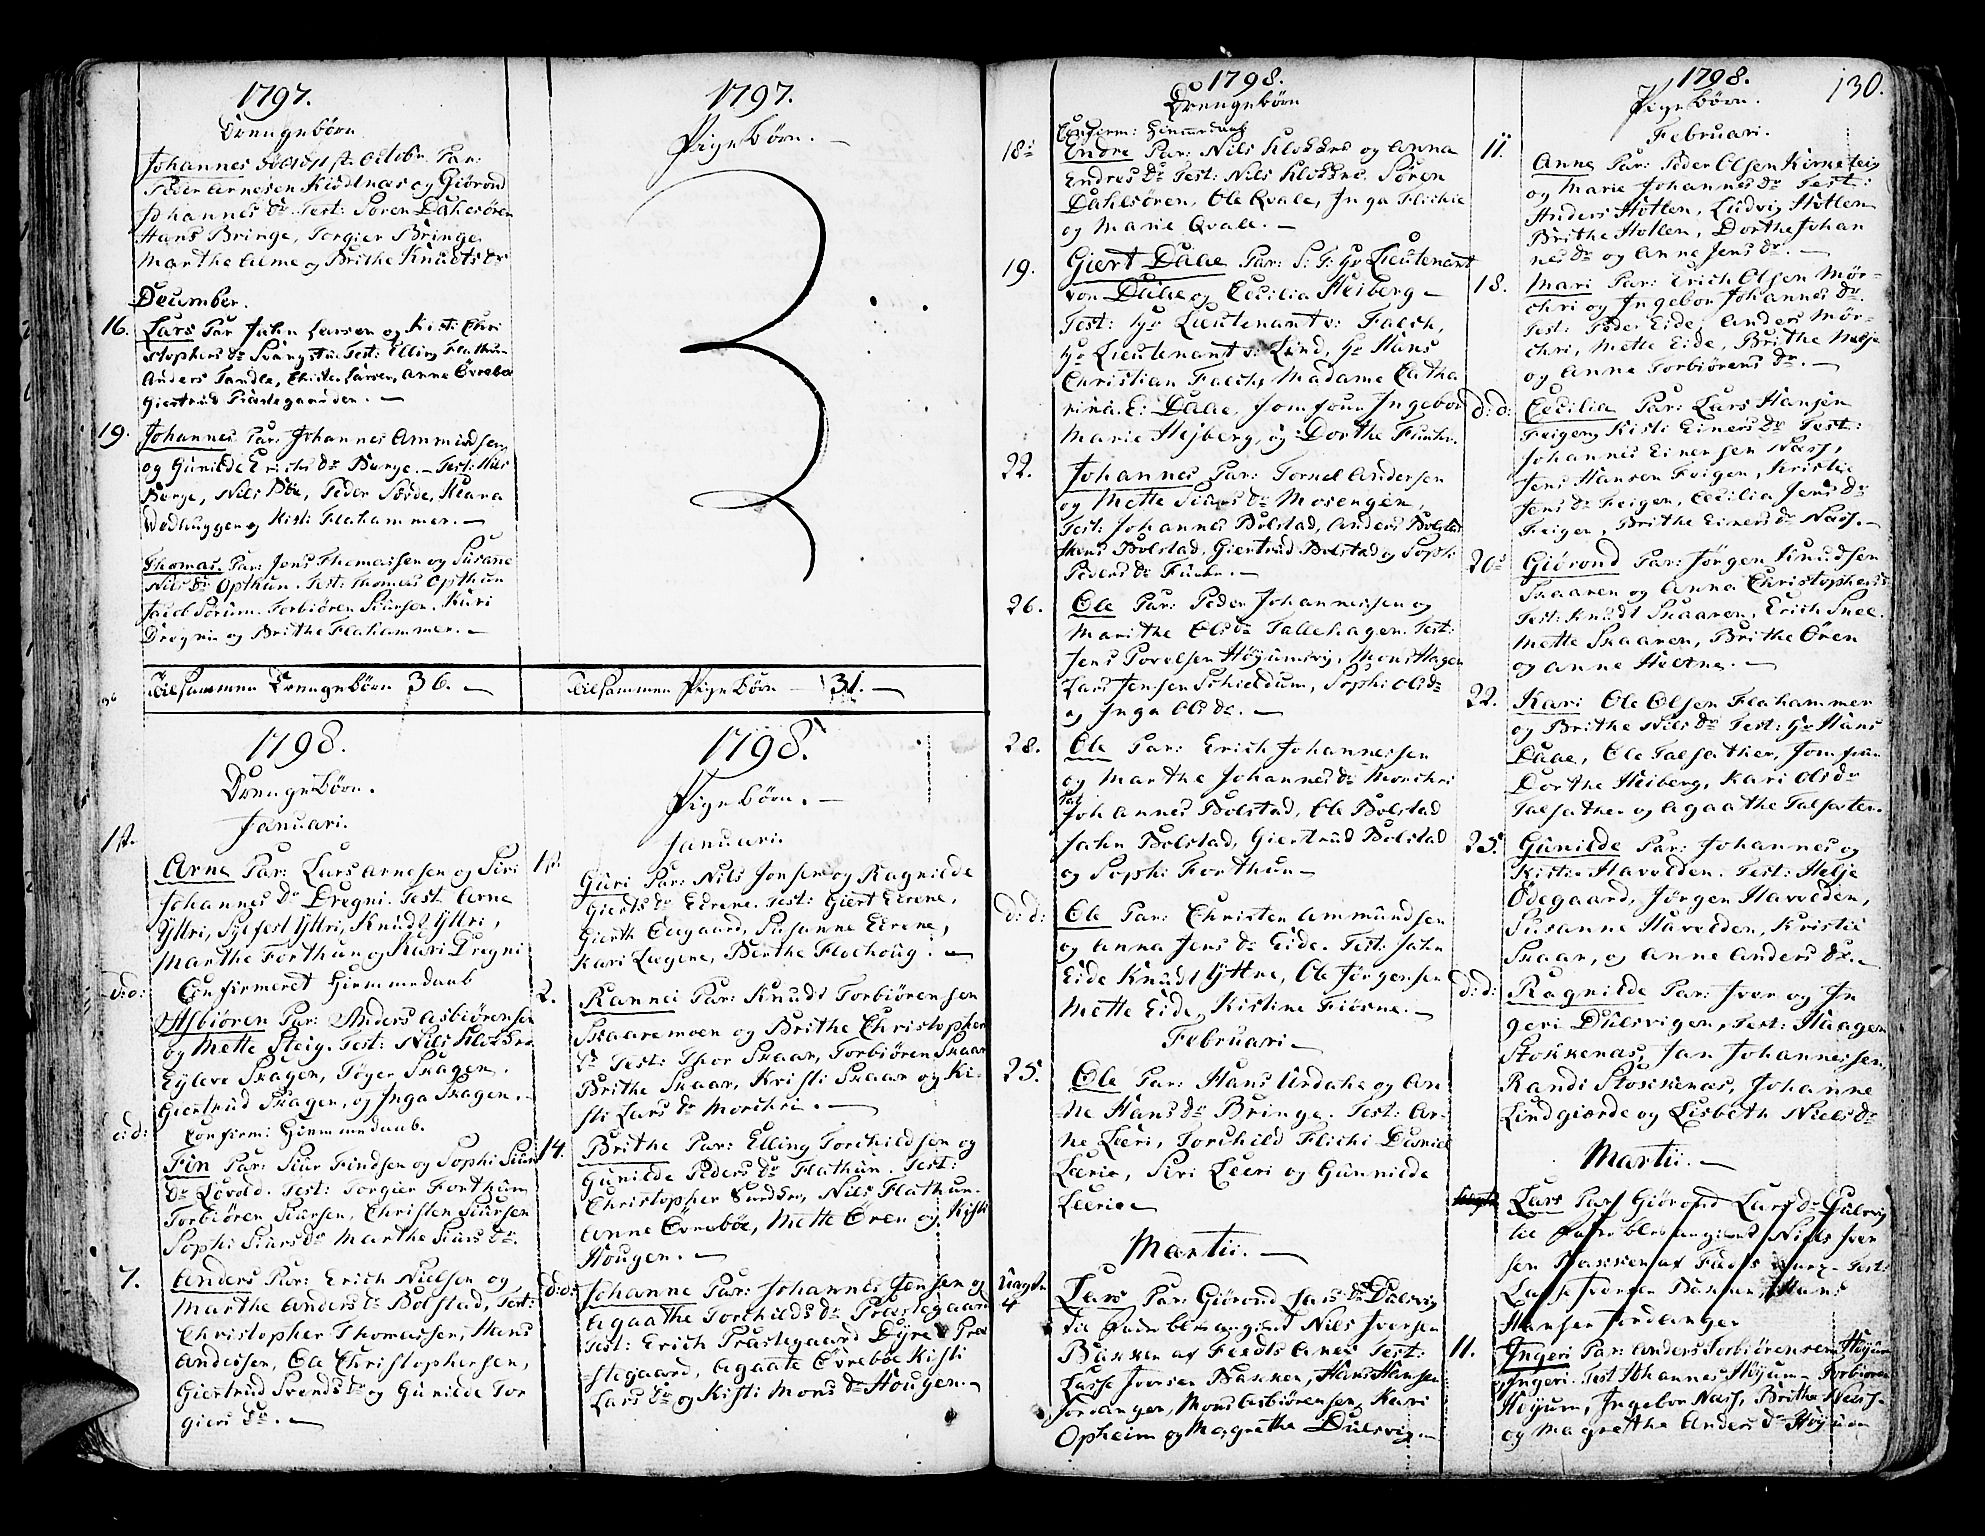 1797.
Drengebörn
Johannes Par:
Peder Arnesen Kiödtnæs og Giörond
Johannes Dr. Test: Sören Dahlsören
Hans Bringe, Torgier Bringe
Marthe Alme og Brithe Knudts Dr
December.
16. Lars Par Jahn Larsen og Kisti Chri
stophers Dr Test: Elling Flathun
Anders Tandle, Christen Larsen, Anne Övreböe
Giertrud Præstegaarden. —
19. Johannes Par: Johannes Ammundsen
og Gunilde Erichs Dr Berge. — Test:
Berge, Nils Böe, Peder
og Kisti Flahammer. —
Thomas. Par: Jens Thomassen og Susanne
Nils Dr Opthun. Test: Thomas Opthun
Jacob Sorum. Torbiören Siursen. Kari
Dregni og Brithe Flahammer. —
Tilsammen Drengebörn 36. —
1797.
Pigebörn. —
Tilsammen Pigebörn — 31. —
1798.
Drengebörn.
Januari.
1st.
Arne Par: Lars Arnesen og Siri
Johannes Dr Dregni. Test Arne
Yttri, Sylfest Yttri, Knudt Yttri,
Marthe Forthun og Kari Dregni
d:o: Confirmeret Hiemmedaab
Asbiören Par: Anders Asbiörensen
og Mette Steig. Test: Nils Klokker
Eyleve Skagen, Töger Skagen,
Giertrud Skagen, og Inga Skagen. —
d:d: Confirm: Hiemmedaab.
Fin Par: Siur Findsen og Sophi Siurs
Dr Lövold. Test: Torgier Forthun
Torbiören Siursen, Christen Siursen
Sophi Siurs Dr Marthe Siurs Dr.
7. Anders Par: Erich Nielsen og
Marthe Anders Dr Bolstad, Test:
Christopher Thomassen, Hans
Andersen, Ole Christophersen,
Giertrud Svends Dr og Gunilde Tor
giers Dr. —
1798.
Pigebörn. —
Januari.
1st. Guri Par: Nils Jonsen og Ragnilde
Gierts Dr Eirene. Test: Giert Eirene,
Gierth Eegaard, Susanne Eirene,
Kari Leegene, Berthe Floehoug. —
2. Rannei Par: Knudt Torbiörensen
Skaaremoen og Brithe Christopher
Dr Test: Thor Skaar, Torbiören Skaar
Brithe Skaar, Kristi Skaar og Ki
sti Lars Dr Morchri. —
14. Brithe Par: Elling Torchildsen og
Gunilde Peders Dr Flathun. Test:
Christopher Nils Flathun.
Anne Övreböe, Mette Ören og Kisti
Hougen. —
d:d: Johanne Par: Johannes Jensen og
Agaathe Torchilds Dr Præstegaard
Test: Erich Præstegaard Dyre Præ
stegaard, Agaate Övreböe Kisti
Lars Dr og Kisti Mons Dr Hougen. —
1798.
Drengebörn
Confirm: Hiemmedaab
18: Endre Par: Nils Klokker og Anna
Endres Dr Test: Nils Klokker. Sören
Dahlsören, Ole Qvale, Inga Flichie
og Marie Qvale. —
19. Giert Daae Par: S: T: Hr Lieutenant
von Daae og Cecilia Heiberg —
Test: Hr Lieutenant v: Falch,
Hr Lieutenant v: Lind, Hr Hans
Christian Falch, Madame Catha
rina E: Daae, Jomfrue Ingebor
Marie Hejberg, og Dorthe
22. Johannes Par: Tomel Andersen
og Mette Siurs Dr Mosengen,
Test: Johannes Bolstad, Anders Bolstad
Hans Bolstad, Giertrud Bolstad og Sophi
Peders Dr
26. Ole Par: Peder Johannessen og
Marithe Ols Dr Tallehagen. Test:
Jens Povelsen Höyumsvig, Mons Hagen
Lars Jensen Schieldum, Sophi Ols Dr
og Inga Ols Dr. —
28. Ole Par: Erich Johannessen
og Marthe Johannes Dr Morchri
Test Johannes Bolstad, Ole Bolstad
Jahn Bolstad, Giertrud Bolstad
og Sophi Forthun —
d:d: Ole Par: Christen Ammundsen
og Anna Jens Dr Eide. Test: Jahn
Eide Knudt Yttre, Ole Jörgensen
Mette Eide, Kistine Fiösne. —
Februari —
25. Ole Par: Hans Urdahe og An
ne Hans Dr Bringe. Test: Ar
ne Leeri, Torchild Flichi Daniel
Leerie, Siri Leeri og Gunnilde
Leerie —
Martii. —
4 Lars Par: Giörond Lars Dr Dulsvig
til Fader blev angivet Nils Iversen
Bakken af Test:
Lasse Iversen Bakken, Hans Hansen
Jordanger, Mons Asbiörensen, Kari
Opheim og Magrethe Dulsvig. —
1798. 130.
Pigebörn.
Februari.
11. Anne Par: Peder Olsen Kirneteig
og Marie Johannes Dr Test:
Anders Holten, Ludvig Holten
Brithe Holten, Dorthe Johan
nes Dr og Anne Jens Dr. —
18. Mari Par: Erich Olsen Mör-
chri og Ingebor Johannes Dr.
Test: Peder Eide, Anders Mör-
chri, Mette Eide, Brithe Melje
og Anne Torbiörens Dr. —
d:d: Cecilia Par: Lars Hansen
Feigen Kisti Einers Dr Test:
Johannes Einersen Næss,
Jens Hansen Feigen, Kristie
Jens Dr Feigen, Cecilia Jens Dr
Feigen, Brithe Einers Dr Næss. —
20: Giörond Par: Jörgen Knudsen
Skaaren og Anna Christophers Dr
Test: Knudt Skaaren, Erich Snee.
Mette Skaaren, Brithe Ören
og Anne —
22. Kari Ole Olsen Flahammer
og Brithe Nils Dr Test: Hr Hans
Daae, Ole Talsæther, Jomfrue
Dorthe Heiberg, Kari Ols Dr
Talsæther og Agaathe Talsæter.
25. Gunilde Par: Johannes og
Kisti Havelden. Test: Helje
Ödegaard, Jörgen Havelden,
Susanne Havelden, Kristie
Skaar, og Anne Anders Dr. —
d:d: Ragnilde Par: Iver og In
geri Dulsvigen, Test: Haagen
Stokkenæs, Jan Johannessen,
Randi Stokkenæs, Johanne
Lindgiærde og Lisbeth Niels Dr
Martii. —
Lars Par Giörond Lars Dr Dulsvig
til Fader blev angivet Niels Iver
sen Bakken af Test:
Lasse Iversen Bakken, Hans
Hansen Jordanger
11. Ingeri Par: Anders Torbiörensen Höyum
og Ingeri. Test Johannes Höyum, Torbiören
Höyum, Ingebor Næss, Brithe Næss.
og Magrethe Anders Dr Höyum